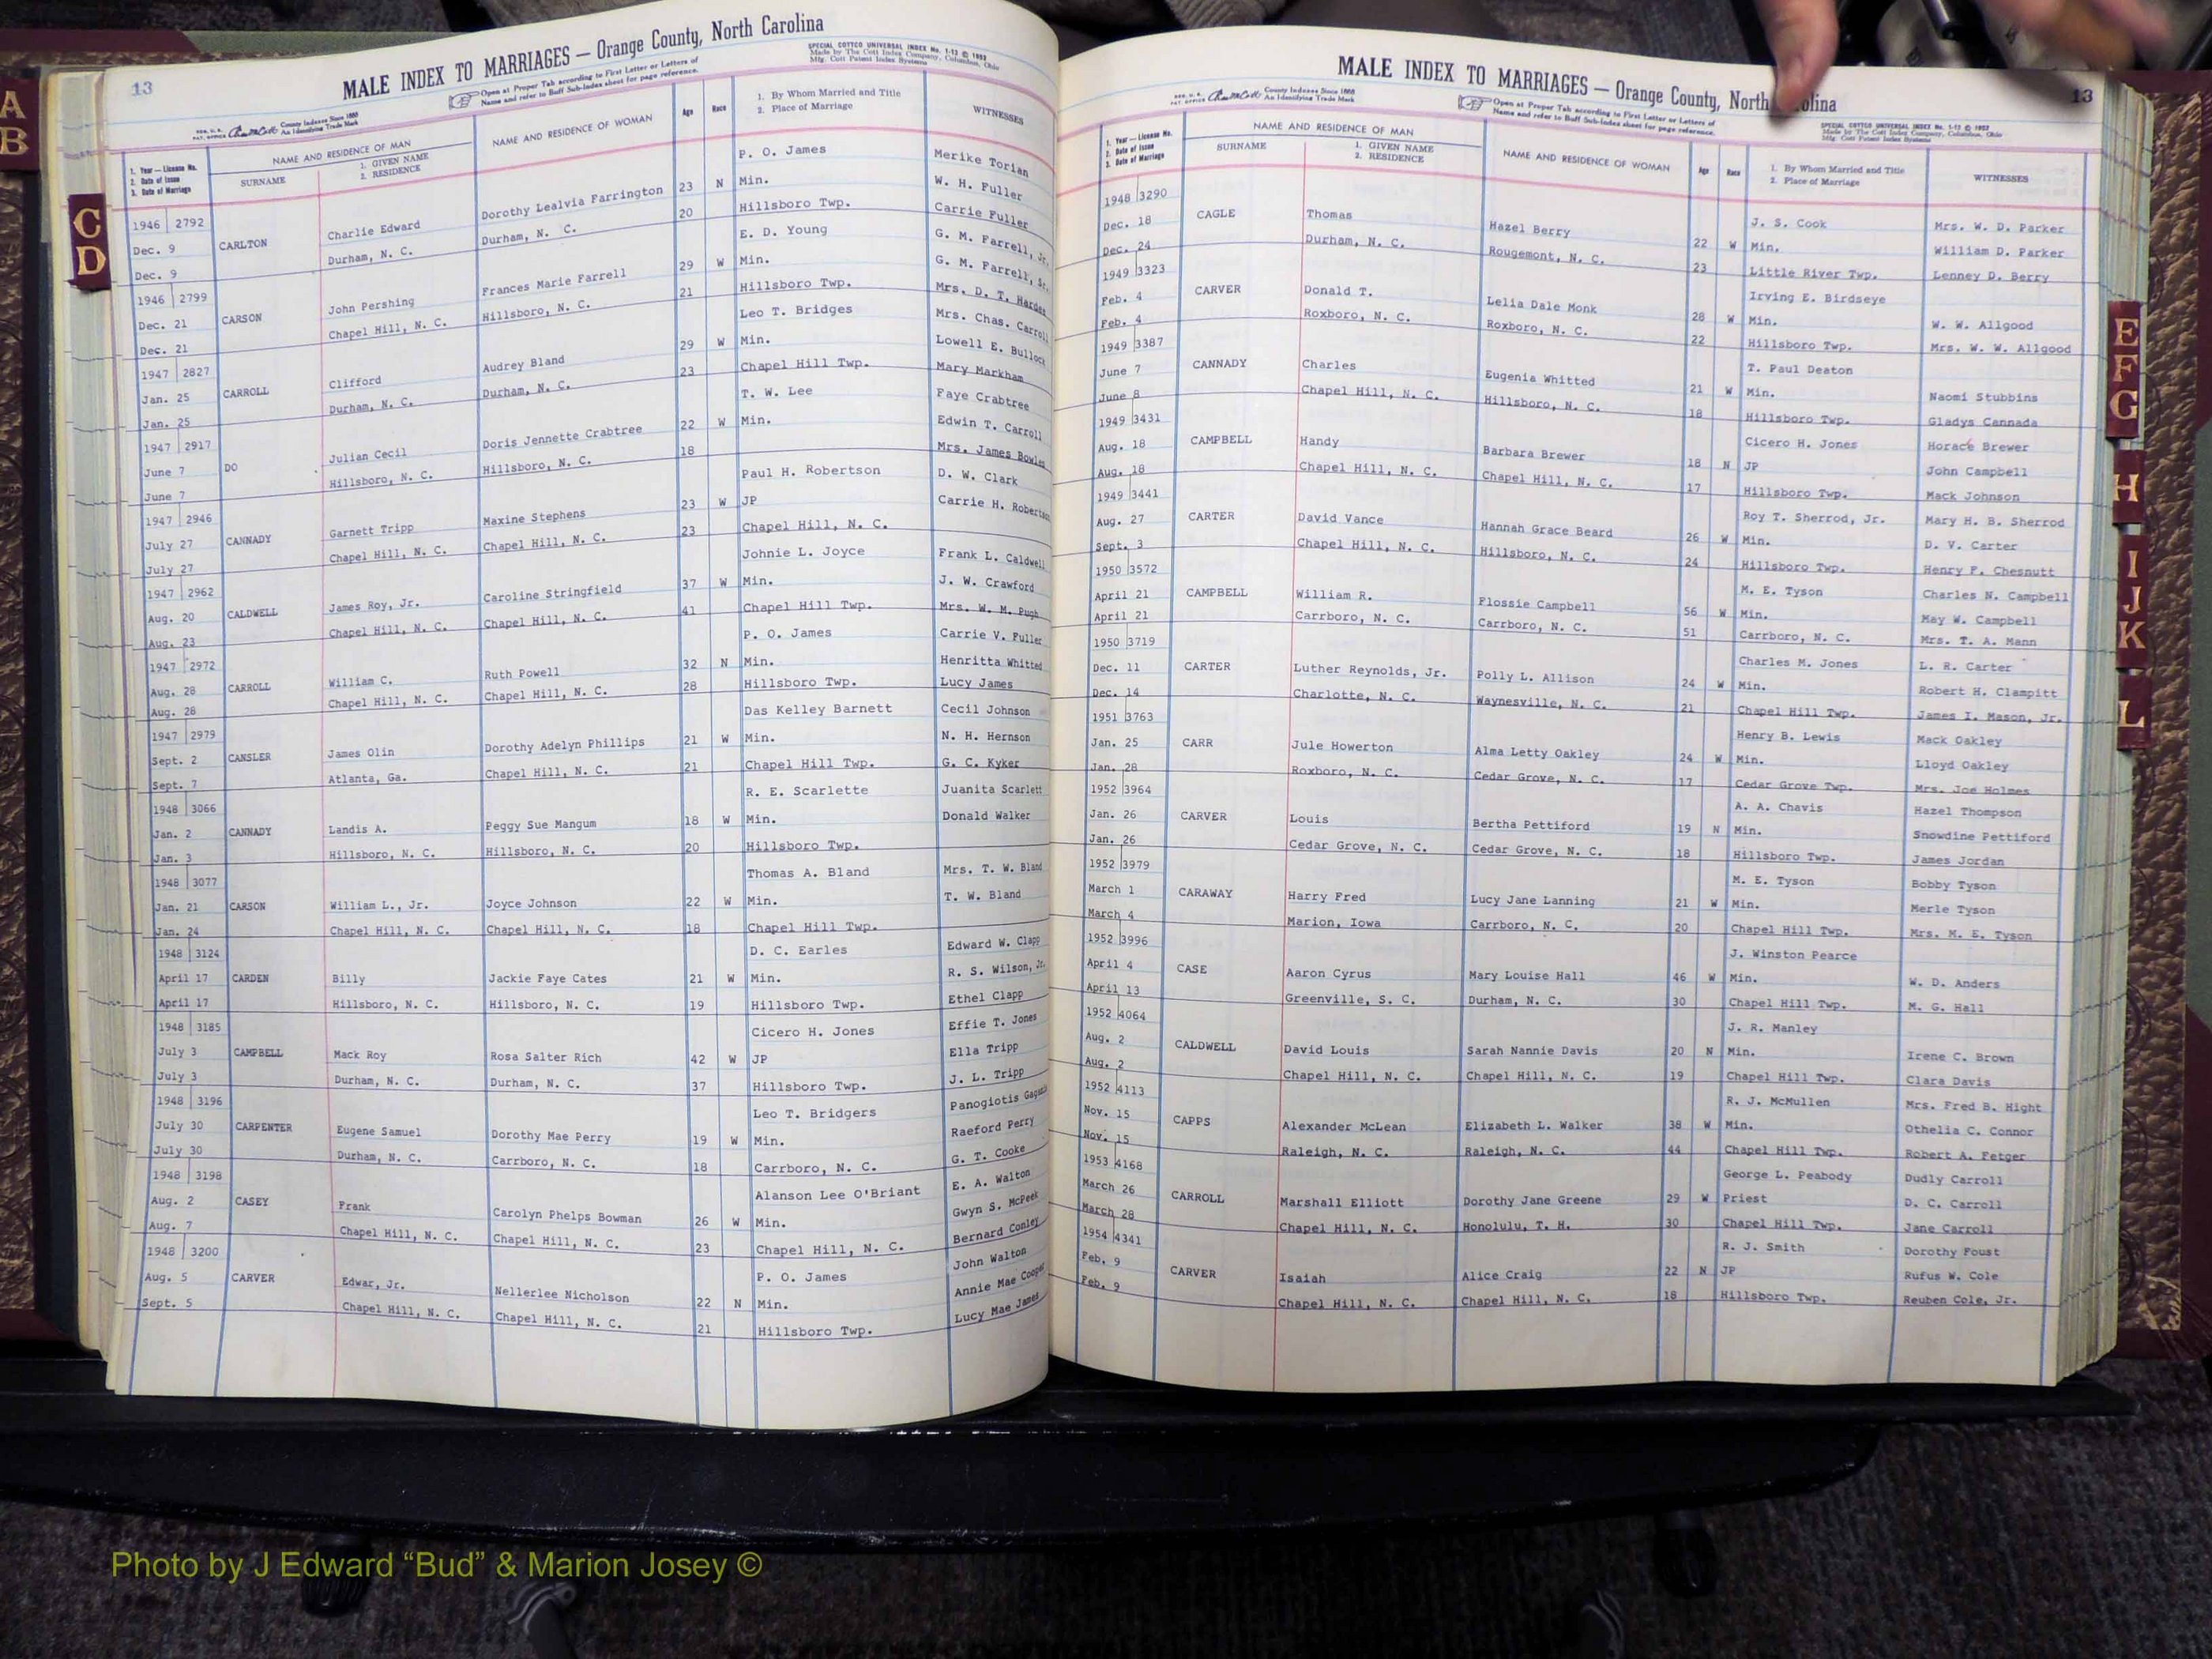 13
MALE INDEX TO MARRIAGES — Orange County, North Carolina
SPECIAL COTTCO UNIVERSAL INDEX No. 1-12 © 1952
Made by The Cott Index Company, Columbus, Ohio
Mfg. Cott Patent Index Systems
Open at Proper Tab according to First Letter or Letters of
Name and refer to Buff Sub-Index sheet for page reference.
County Indexes Since 1888
An Identifying Trade Mark
1. Year — License No.
2. Date of Issue
3. Date of Marriage
NAME AND RESIDENCE OF MAN
SURNAME
1. GIVEN NAME
2. RESIDENCE
NAME AND RESIDENCE OF WOMAN
Age
Race
1. By Whom Married and Title
2. Place of Marriage
WITNESSES
1946 2792 P. O. James Merike Torian
Dec. 9 CARLTON Charlie Edward Dorothy Lealvia Farrington 23 N Min. W. H. Fuller
Dec. 9 Durham, N. C. Durham, N. C. 20 Hillsboro Twp. Carrie Fuller
1946 2799 E. D. Young G. M. Farrell, Jr.
Dec. 21 CARSON John Pershing Frances Marie Farrell 29 W Min. G. M. Farrell, Sr.
Dec. 21 Chapel Hill, N. C. Hillsboro, N. C. 21 Hillsboro Twp. Mrs. D. T.
1947 2827 Leo T. Bridges Mrs. Chas. Carroll
Jan. 25 CARROLL Clifford Audrey Bland 29 W Min. Lowell E. Bullock
Jan. 25 Durham, N. C. Durham, N. C. 23 Chapel Hill Twp. Mary Markham
1947 2917 T. W. Lee Faye Crabtree
June 7 DO Julian Cecil Doris Jennette Crabtree 22 W Min. Edwin T. Carroll
June 7 Hillsboro, N. C. Hillsboro, N. C. 18 Mrs. James Bowles
1947 2946 Paul H. Robertson D. W. Clark
July 27 CANNADY Garnett Tripp Maxine Stephens 23 W JP Carrie H. Robertson
July 27 Chapel Hill, N. C. Chapel Hill, N. C. 23 Chapel Hill, N. C.
1947 2962 Johnie L. Joyce Frank L. Caldwell
Aug. 20 CALDWELL James Roy, Jr. Caroline Stringfield 37 W Min. J. W. Crawford
Aug. 23 Chapel Hill, N. C. Chapel Hill, N. C. 41 Chapel Hill Twp. Mrs. W. M. Pugh
1947 2972 P. O. James Carrie V. Fuller
Aug. 28 CARROLL William C. Ruth Powell 32 N Min. Henritta Whitted
Aug. 28 Chapel Hill, N. C. Chapel Hill, N. C. 28 Hillsboro Twp. Lucy James
1947 2979 Das Kelley Barnett Cecil Johnson
Sept. 2 CANSLER James Olin Dorothy Adelyn Phillips 21 W Min. N. H. Hernson
Sept. 7 Atlanta, Ga. Chapel Hill, N. C. 21 Chapel Hill Twp. G. C. Kyker
1948 3066 R. E. Scarlette Juanita Scarlett
Jan. 2 CANNADY Landis A. Peggy Sue Mangum 18 W Min. Donald Walker
Jan. 3 Hillsboro, N. C. Hillsboro, N. C. 20 Hillsboro Twp.
1948 3077 Thomas A. Bland Mrs. T. W. Bland
Jan. 21 CARSON William L., Jr. Joyce Johnson 22 W Min. T. W. Bland
Jan. 24 Chapel Hill, N. C. Chapel Hill, N. C. 18 Chapel Hill Twp.
1948 3124 D. C. Earles Edward W. Clapp
April 17 CARDEN Billy Jackie Faye Cates 21 W Min. R. S. Wilson, Jr.
April 17 Hillsboro, N. C. Hillsboro, N. C. 19 Hillsboro Twp. Ethel Clapp
1948 3185 Cicero H. Jones Effie T. Jones
July 3 CAMPBELL Mack Roy Rosa Salter Rich 42 W JP Ella Tripp
July 3 Durham, N. C. Durham, N. C. 37 Hillsboro Twp. J. L. Tripp
1948 3196 Leo T. Bridgers Panogiotis
July 30 CARPENTER Eugene Samuel Dorothy Mae Perry 19 W Min. Raeford Perry
July 30 Durham, N. C. Carrboro, N. C. 18 Carrboro, N. C. G. T. Cooke
1948 3198 Alanson Lee O'Briant E. A. Walton
Aug. 2 CASEY Frank Carolyn Phelps Bowman 26 W Min. Gwyn S. McPeek
Aug. 7 Chapel Hill, N. C. Chapel Hill, N. C. 23 Chapel Hill, N. C. Bernard Conley
1948 3200 P. O. James John Walton
Aug. 5 CARVER Edwar, Jr. Nellerlee Nicholson 22 N Min. Annie Mae Cooper
Sept. 5 Chapel Hill, N. C. Chapel Hill, N. C. 21 Hillsboro Twp. Lucy Mae James
MALE INDEX TO MARRIAGES — Orange County, North
13
SPECIAL COTTCO UNIVERSAL INDEX No. 1-12 © 1952
Made by The Cott Index Company, Columbus, Ohio
Mfg. Cott Patent Index Systems
Open at Proper Tab according to First Letter or Letters of
Name and refer to Buff Sub-Index sheet for page reference.
County Indexes Since 1888
An Identifying Trade Mark
1. Year — License No.
2. Date of Issue
3. Date of Marriage
NAME AND RESIDENCE OF MAN
SURNAME
1. GIVEN NAME
2. RESIDENCE
NAME AND RESIDENCE OF WOMAN
Age
Race
1. By Whom Married and Title
2. Place of Marriage
WITNESSES
1948 3290 J. S. Cook Mrs. W. D. Parker
Dec. 18 CAGLE Thomas Hazel Berry 22 W Min. William D. Parker
Dec. 24 Durham, N. C. Rougemont, N. C. 23 Little River Twp. Lenney D. Berry
1949 3323 Irving E. Birdseye
Feb. 4 CARVER Donald T. Lelia Dale Monk 28 W Min. W. W. Allgood
Feb. 4 Roxboro, N. C. Roxboro, N. C. 22 Hillsboro Twp. Mrs. W. W. Allgood
1949 3387 T. Paul Deaton
June 7 CANNADY Charles Eugenia Whitted 21 W Min. Naomi Stubbins
June 8 Chapel Hill, N. C. Hillsboro, N. C. 18 Hillsboro Twp. Gladys Cannada
1949 3431 Cicero H. Jones Horace Brewer
Aug. 18 CAMPBELL Handy Barbara Brewer 18 N JP John Campbell
Aug. 18 Chapel Hill, N. C. Chapel Hill, N. C. 17 Hillsboro Twp. Mack Johnson
1949 3441 Roy T. Sherrod, Jr. Mary H. B. Sherrod
Aug. 27 CARTER David Vance Hannah Grace Beard 26 W Min. D. V. Carter
Sept. 3 Chapel Hill, N. C. Hillsboro, N. C. 24 Hillsboro Twp. Henry P. Chesnutt
1950 3572 M. E. Tyson Charles N. Campbell
April 21 CAMPBELL William R. Flossie Campbell 56 W Min. May W. Campbell
April 21 Carrboro, N. C. Carrboro, N. C. 51 Carrboro, N. C. Mrs. T. A. Mann
1950 3719 Charles M. Jones L. R. Carter
Dec. 11 CARTER Luther Reynolds, Jr. Polly L. Allison 24 W Min. Robert H. Clampitt
Dec. 14 Charlotte, N. C. Waynesville, N. C. 21 Chapel Hill Twp. James I. Mason, Jr.
1951 3763 Henry B. Lewis Mack Oakley
Jan. 25 CARR Jule Howerton Alma Letty Oakley 24 W Min. Lloyd Oakley
Jan. 28 Roxboro, N. C. Cedar Grove, N. C. 17 Cedar Grove Twp. Mrs. Joe Holmes
1952 3964 A. A. Chavis Hazel Thompson
Jan. 26 CARVER Louis Bertha Pettiford 19 N Min. Snowdine Pettiford
Jan. 26 Cedar Grove, N. C. Cedar Grove, N. C. 18 Hillsboro Twp. James Jordan
1952 3979 M. E. Tyson Bobby Tyson
March 1 CARAWAY Harry Fred Lucy Jane Lanning 21 W Min. Merle Tyson
March 4 Marion, Iowa Carrboro, N. C. 20 Chapel Hill Twp. Mrs. M. E. Tyson
1952 3996 J. Winston Pearce
April 4 CASE Aaron Cyrus Mary Louise Hall 46 W Min. W. D. Anders
April 13 Greenville, S. C. Durham, N. C. 30 Chapel Hill Twp. M. G. Hall
1952 4064 J. R. Manley
Aug. 2 CALDWELL David Louis Sarah Nannie Davis 20 N Min. Irene C. Brown
Aug. 2 Chapel Hill, N. C. Chapel Hill, N. C. 19 Chapel Hill Twp. Clara Davis
1952 4113 R. J. McMullen Mrs. Fred B. Hight
Nov. 15 CAPPS Alexander McLean Elizabeth L. Walker 38 W Min. Othelia C. Connor
Nov. 15 Raleigh, N. C. Raleigh, N. C. 44 Chapel Hill Twp. Robert A. Fetger
1953 4168 George L. Peabody Dudly Carroll
March 26 CARROLL Marshall Elliott Dorothy Jane Greene 29 W Priest D. C. Carroll
March 28 Chapel Hill, N. C. Honolulu, T. H. 30 Chapel Hill Twp. Jane Carroll
1954 4341 R. J. Smith Dorothy Foust
Feb. 9 CARVER Isaiah Alice Craig 22 N JP Rufus W. Cole
Feb. 9 Chapel Hill, N. C. Chapel Hill, N. C. 18 Hillsboro Twp. Reuben Cole, Jr.
A
B
C
D
E
F
G
H
I
J
K
L
Photo by J Edward “Bud” & Marion Josey ©